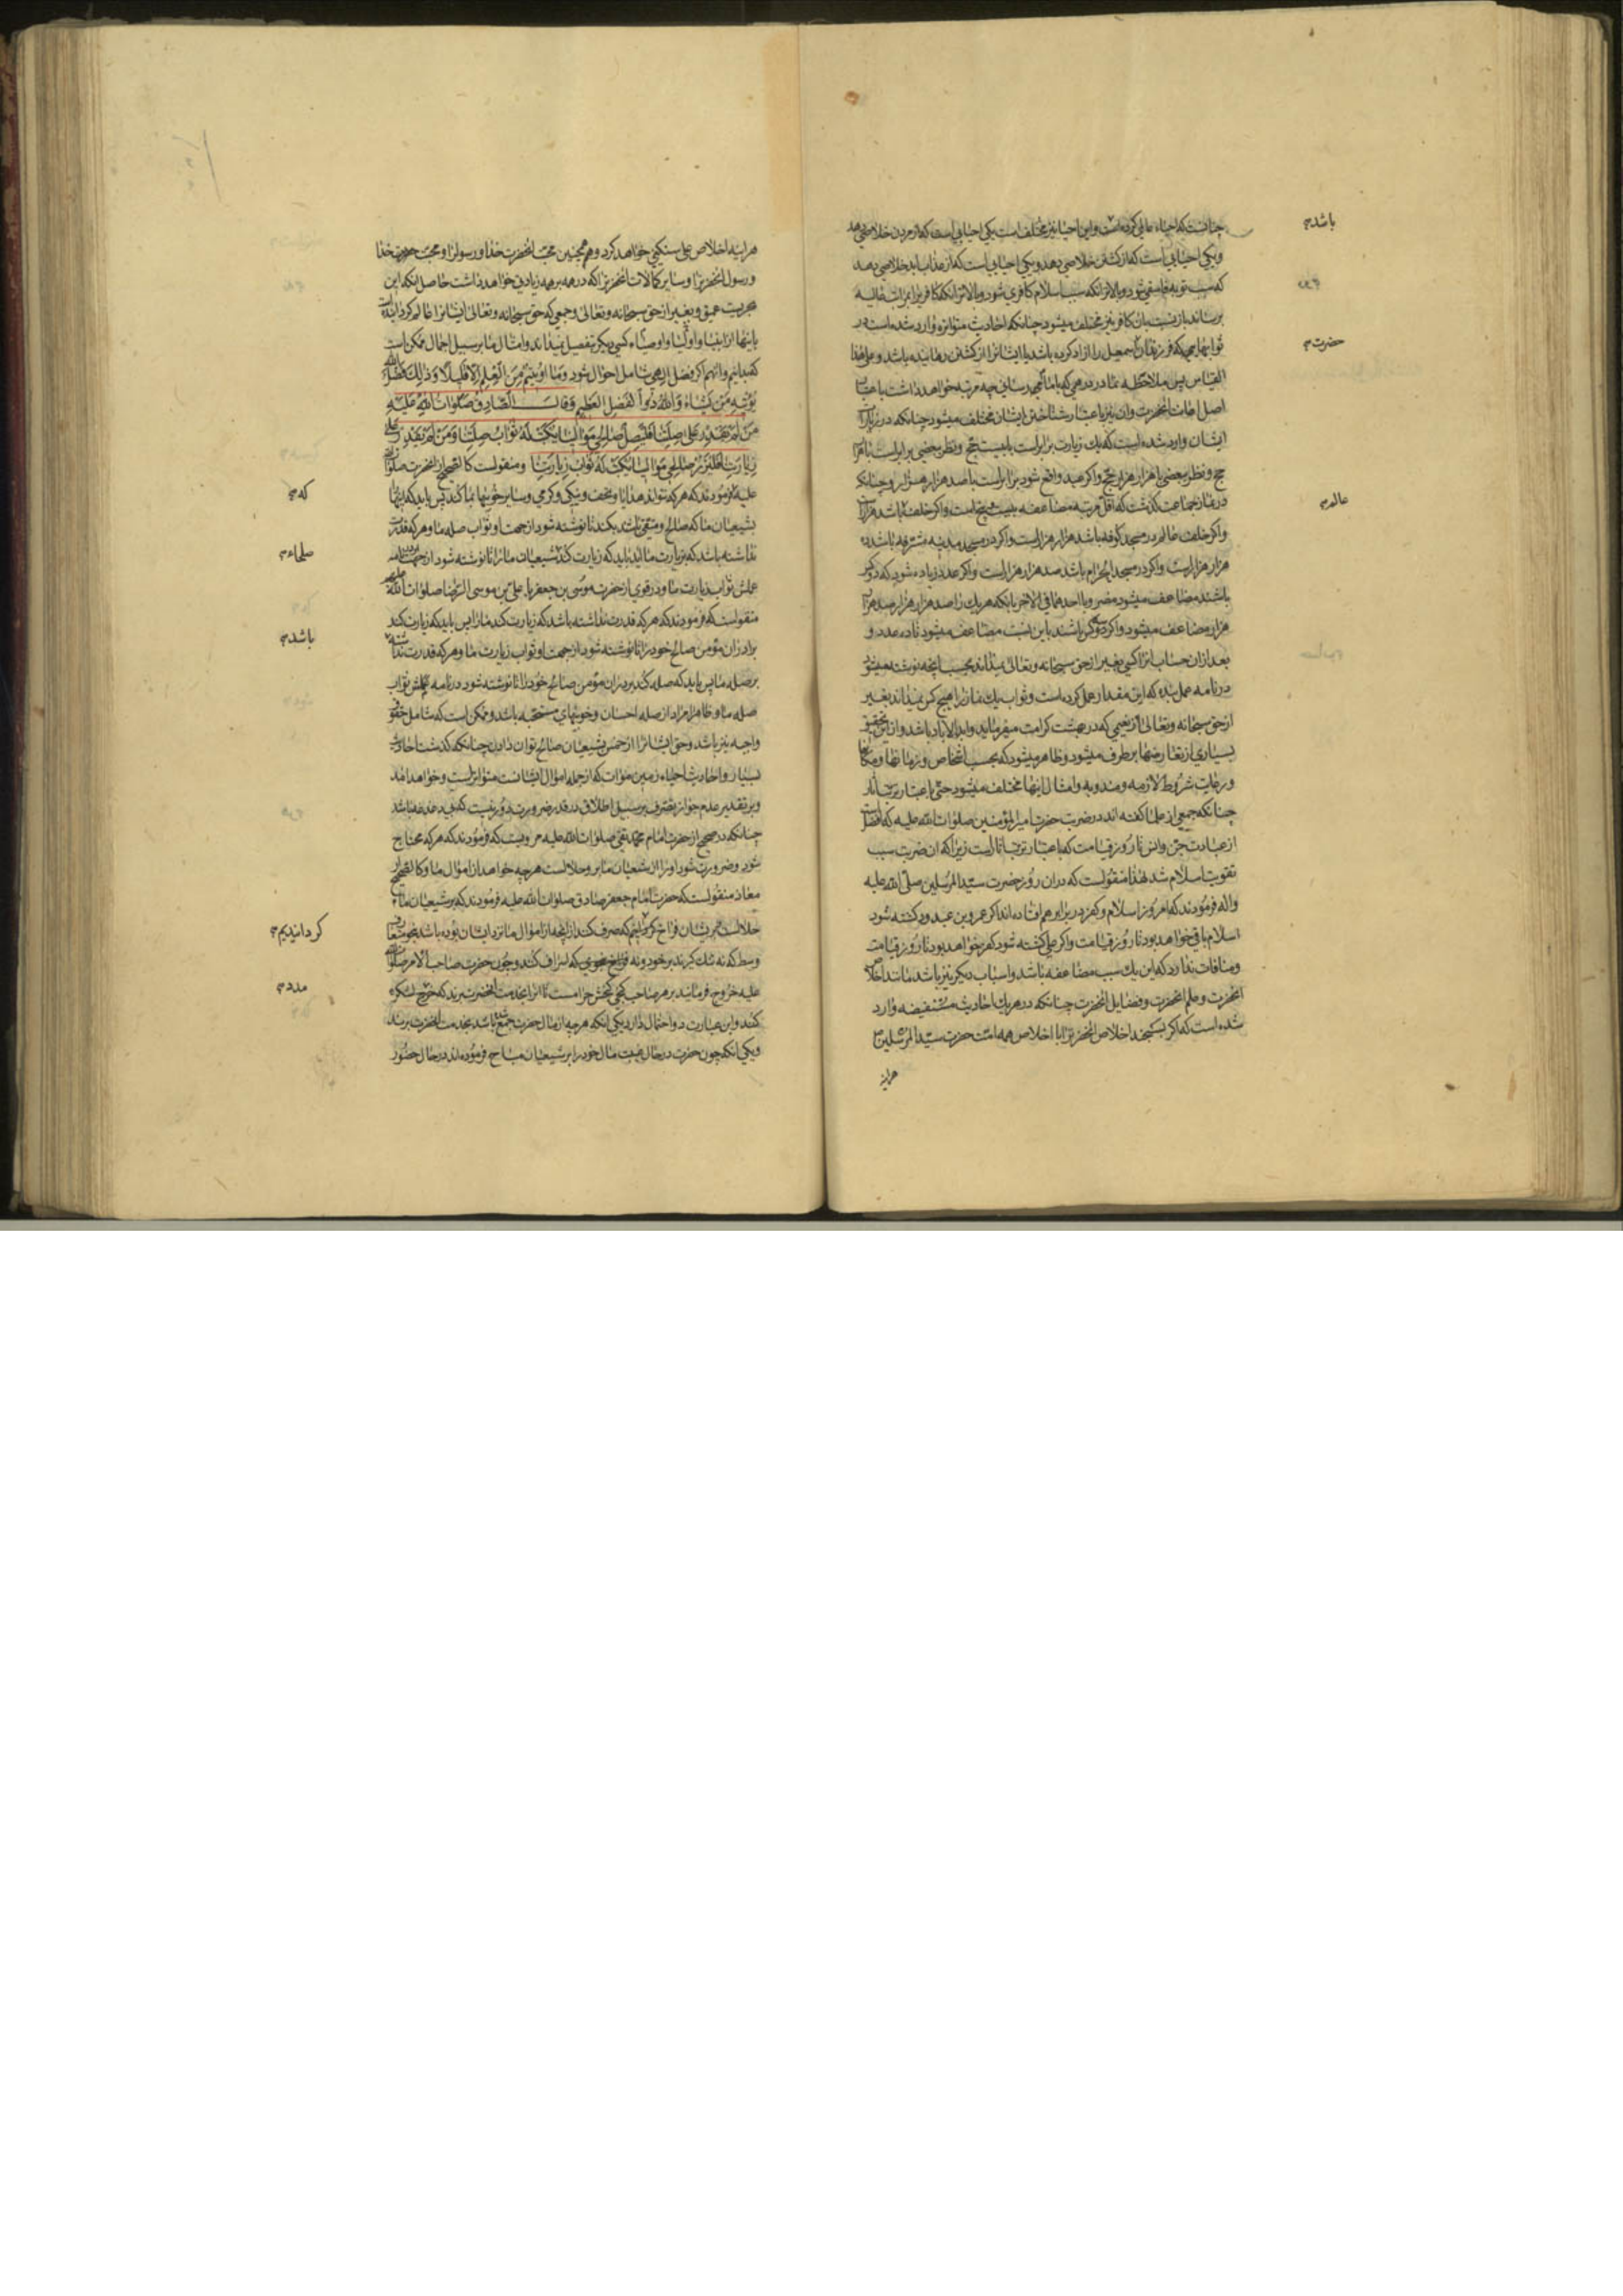 چنانست که احیاء عالمی کرده است و این احیا نیز مختلف است یکی احیایی است که از مردن خلاصی دهد
باشد
و یکی احیایی است که از کشتن خلاصی دهد و یکی احیایی است که از عذاب ابد خلاصی دهد
که سبب توبه فاسقی شود و بالاتر انکه سبب اسلام کافری شود و بالاتر انکه کافر را بمراتب عالیه
برساند باز نسبت بان کافر نیز مختلف میشود چنانکه احادیث متواتره وارد شده است در
ثوابهایی که فرزندان اسمعیل را ازاد کرده باشد یا ایشانرا از کشتن رهانیده باشد و علی هذا
حضرت
القیاس پس ملاحظه نما در درهمی که بامام رسانی چه مرتبه خواهد داشت باعتبار
اصل اعانت انحضرت و ان نیز باعتبار شناختن ایشان مختلف میشود چنانکه در زیارات
ایشان وارد شده است که یک زیارت برابر است با بیست حج و نظر ببعضی برابر است با هزار
حج و نظر ببعضی با هزار هزار حج و اگر عید واقع شود برابر است با صد هزار هزار و چنانکه
در نماز جماعت گذشت که اقل مرتبه مضاعفه بیست و پنج است و اگر خلف باشد هزار
عالم
و اگر خلف عالم در مسجد کوفه باشد هزار هزار است و اگر در مسجد مدینه مشرفه باشد ده
هزار هزار است و اگر در مسجد الحرام باشد صد هزار هزار است و اگر عدد زیاده شود که دو کس
باشند مضاعف میشود مضروبا احدهما فی الاخر بانکه هر یک را صد هزار هزار صد هزار
هزار مضاعف میشود و اگر کس باشند باین نسبت مضاعف میشود تا ده عدد و
بعد از ان حساب انرا کسی بغیر از حق سبحانه و تعالی نمیداند بحسب انچه نوشته میشود
در نامه عمل بنده که این مقدار عمل کرده است و ثواب یک نماز را هیچ کس نمیداند بغیر
از حق سبحانه و تعالی از نعیمی که در بهشت کرامت میفرماید و ابد الاباد باشد و از این تحقیق
بسیاری از تعارضها برطرف میشود و ظاهر میشود که بحسب اشخاص و زمانها و مکانها
و رعایت شروط لازمه و مندوبه و امثال اینها مختلف میشود حتی باعتبار ترتب اثار
چنانکه جمعی از علما گفته اند در ضربت حضرت امیر المؤمنین صلوات الله علیه که افضل است
از عبادت جن و انس تا روز قیامت که باعتبار ترتب اثار است زیرا که ان ضربت سبب
تقویت اسلام شد لهذا منقولست که در ان روز حضرت سید المرسلین صلی الله علیه
و اله فرمودند که امروز اسلام و کفر در برابر هم افتاده اند اگر عمرو بن عبد ود کشته شود
اسلام باقی خواهد بود تا روز قیامت و اگر علی کشته شود کفر خواهد بود تا روز قیامت
و منافات ندارد که این یک سبب مضاعفه باشد و اسباب دیگر نیز باشد مانند اخلاص
انحضرت و علم انحضرت و فضایل انحضرت چنانکه در هر یک احادیث مستفیضه وارد
شده است که اگر بسنجند اخلاص انحضرت را با اخلاص همه امت حضرت سید المرسلین
هراینه
هراینه اخلاص علی سنگینی خواهد کرد و همچنین محبت انحضرت خدا و رسول را و محبت حضرت خدا
و رسول انحضرت را و سایر کمالات انحضرت را که در همه بر همه زیادتی خواهد داشت حاصل انکه این
بحریست عمیق و بغیر از حق سبحانه و تعالی و جمعی که حق سبحانه و تعالی ایشانرا عالم گردانیده است
باینها از انبیا و اولیا و اوصیاء کسی دیگر تفصیل نمیداند و امثال ما بر سبیل اجمال ممکن است
که بدانیم و انهم اگر فضل الهی شامل احوال شود وَمَا اُوتِیتُمْ مِنَ الْعِلْمِ اِلَّا قَلِیلًا وَ ذلِکَ فَضْلُ اللهِ
یُؤْتِیهِ مَنْ یَشَاءُ وَاللهُ ذُو الْفَضْلِ الْعَظِیمِ وَقَالَ الصَّادِقُ صَلَوَاتُ اللهِ عَلَیْهِ
مَنْ لَمْ یَقْدِرْ عَلَی صِلَتِنَا فَلْیَصِلْ صَالِحِی مَوَالِینَا یُکْتَبْ لَهُ ثَوَابُ صِلَتِنَا وَمَنْ لَمْ یَقْدِرْ عَلَی
زِیَارَتِنَا فَلْیَزُرْ صَالِحِی مَوَالِینَا یُکْتَبْ لَهُ ثَوَابُ زِیَارَتِنَا و منقولست کالصحیح از انحضرت صلوات الله
علیه که فرمودند که هر که نتواند هدایا و تحف و نیکی و کرمی و سایر خوبیها بما کند پس باید که اینها
که
بشیعیان ما که صالح و متقی باشند بکند تا نوشته شود از جهت او ثواب صله ما و هر که قدرت
نداشته باشد که بزیارت ما اید باید که زیارت کند شیعیان ما را تا نوشته شود از جهت او در نامه
صلحاء
عملش ثواب زیارت ما و در قوی از حضرت موسی بن جعفر یا علی بن موسی الرضا صلوات الله علیهم
منقولست که فرمودند که هر که قدرت نداشته باشد که زیارت کند ما را پس باید که زیارت کند
برادران مؤمن صالح خود را تا نوشته شود از جهت او ثواب زیارت ما و هر که قدرت نداشته
باشد
بر صله ما پس باید که صله کند برادران مؤمن صالح خود را تا نوشته شود در نامه عملش ثواب
صله ما و ظاهرا مراد از صله احسان و خوبیهای مستحبه باشد و ممکن است که شامل حقوق
واجبه نیز باشد و حق ایشانرا از خمس بشیعیان صالح توان دادن چنانکه گذشت احادیث
بسیار و احادیث احیاء زمین موات که از جمله اموال ایشانست متواتر است و خواهد امد
و بر تقدیر عدم جواز تصرف بر سبیل اطلاق در قدر ضرورت دور نیست که بی دغدغه باشد
چنانکه در صحیح از حضرت امام محمد تقی صلوات الله علیه مرویست که فرمودند که هر که محتاج
شود و ضرورت شود او را از شیعیان ما بر او حلالست هر چه خواهد از اموال ما و کالصحیح از
معاذ منقولست که حضرت امام جعفر صادق صلوات الله علیه فرمودند که بر شیعیان ما
حلالست بر ایشان فراخ که صرف کنند از انچه از اموال ما نزد ایشان بوده باشد بنحو متعارف
گردانیدیم
وسط که نه تنگ گیرند بر خود و نه فراخ بنحوی که اسراف کنند و چون حضرت صاحب الامر صلوات الله
علیه خروج فرمایند بر هر صاحب گنجی گنجش حرامست تا انرا بخدمت انحضرت برند که خرج لشکر
مدد
کنند و این عبارت دو احتمال دارد یکی انکه هر چه از مال حضرت جمع شده باشد بخدمت انحضرت برند
و یکی انکه چون حضرت در حال غیبت مال خود را بر شیعیان مباح فرموده اند در حال حضور